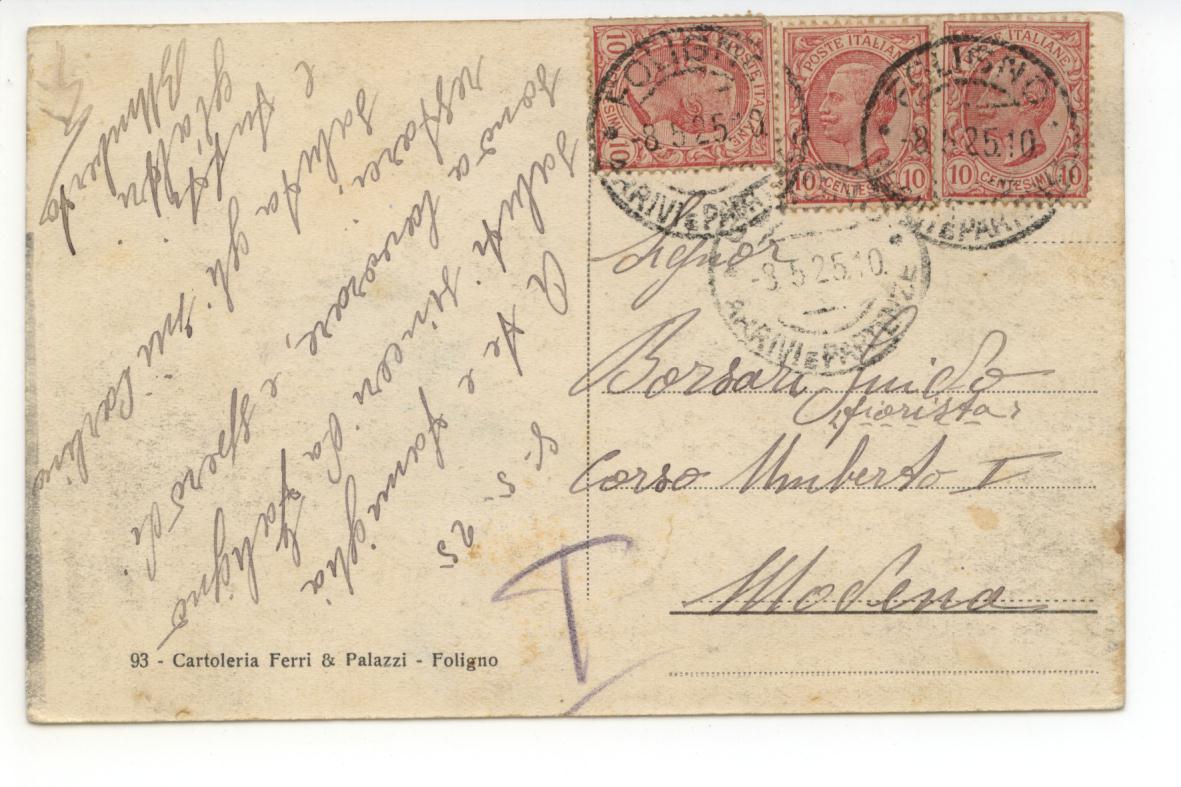 POSTE ITALIANE
10 CENTESIMI 10
POSTE ITALIANE
10 CENTESIMI 10
POSTE ITALIANE
10 CENTESIMI 10
FOLIGNO
-8.5.25.10
ARRIVI E PARTENZE
FOLIGNO
-8.5.25.10
ARRIVI E PARTENZE
-8.5.25.10.
ARRIVI E PARTENZE
8-5-25
A te e famiglia
saluti sinceri da Foligno
sono a lavorare, e spero di
restarci
saluta gli Carlino
e tutta
Umberto
Signor
Borsari Guido
fiorista
Corso Umberto I
Modena
T
93 - Cartoleria Ferri & Palazzi - Foligno